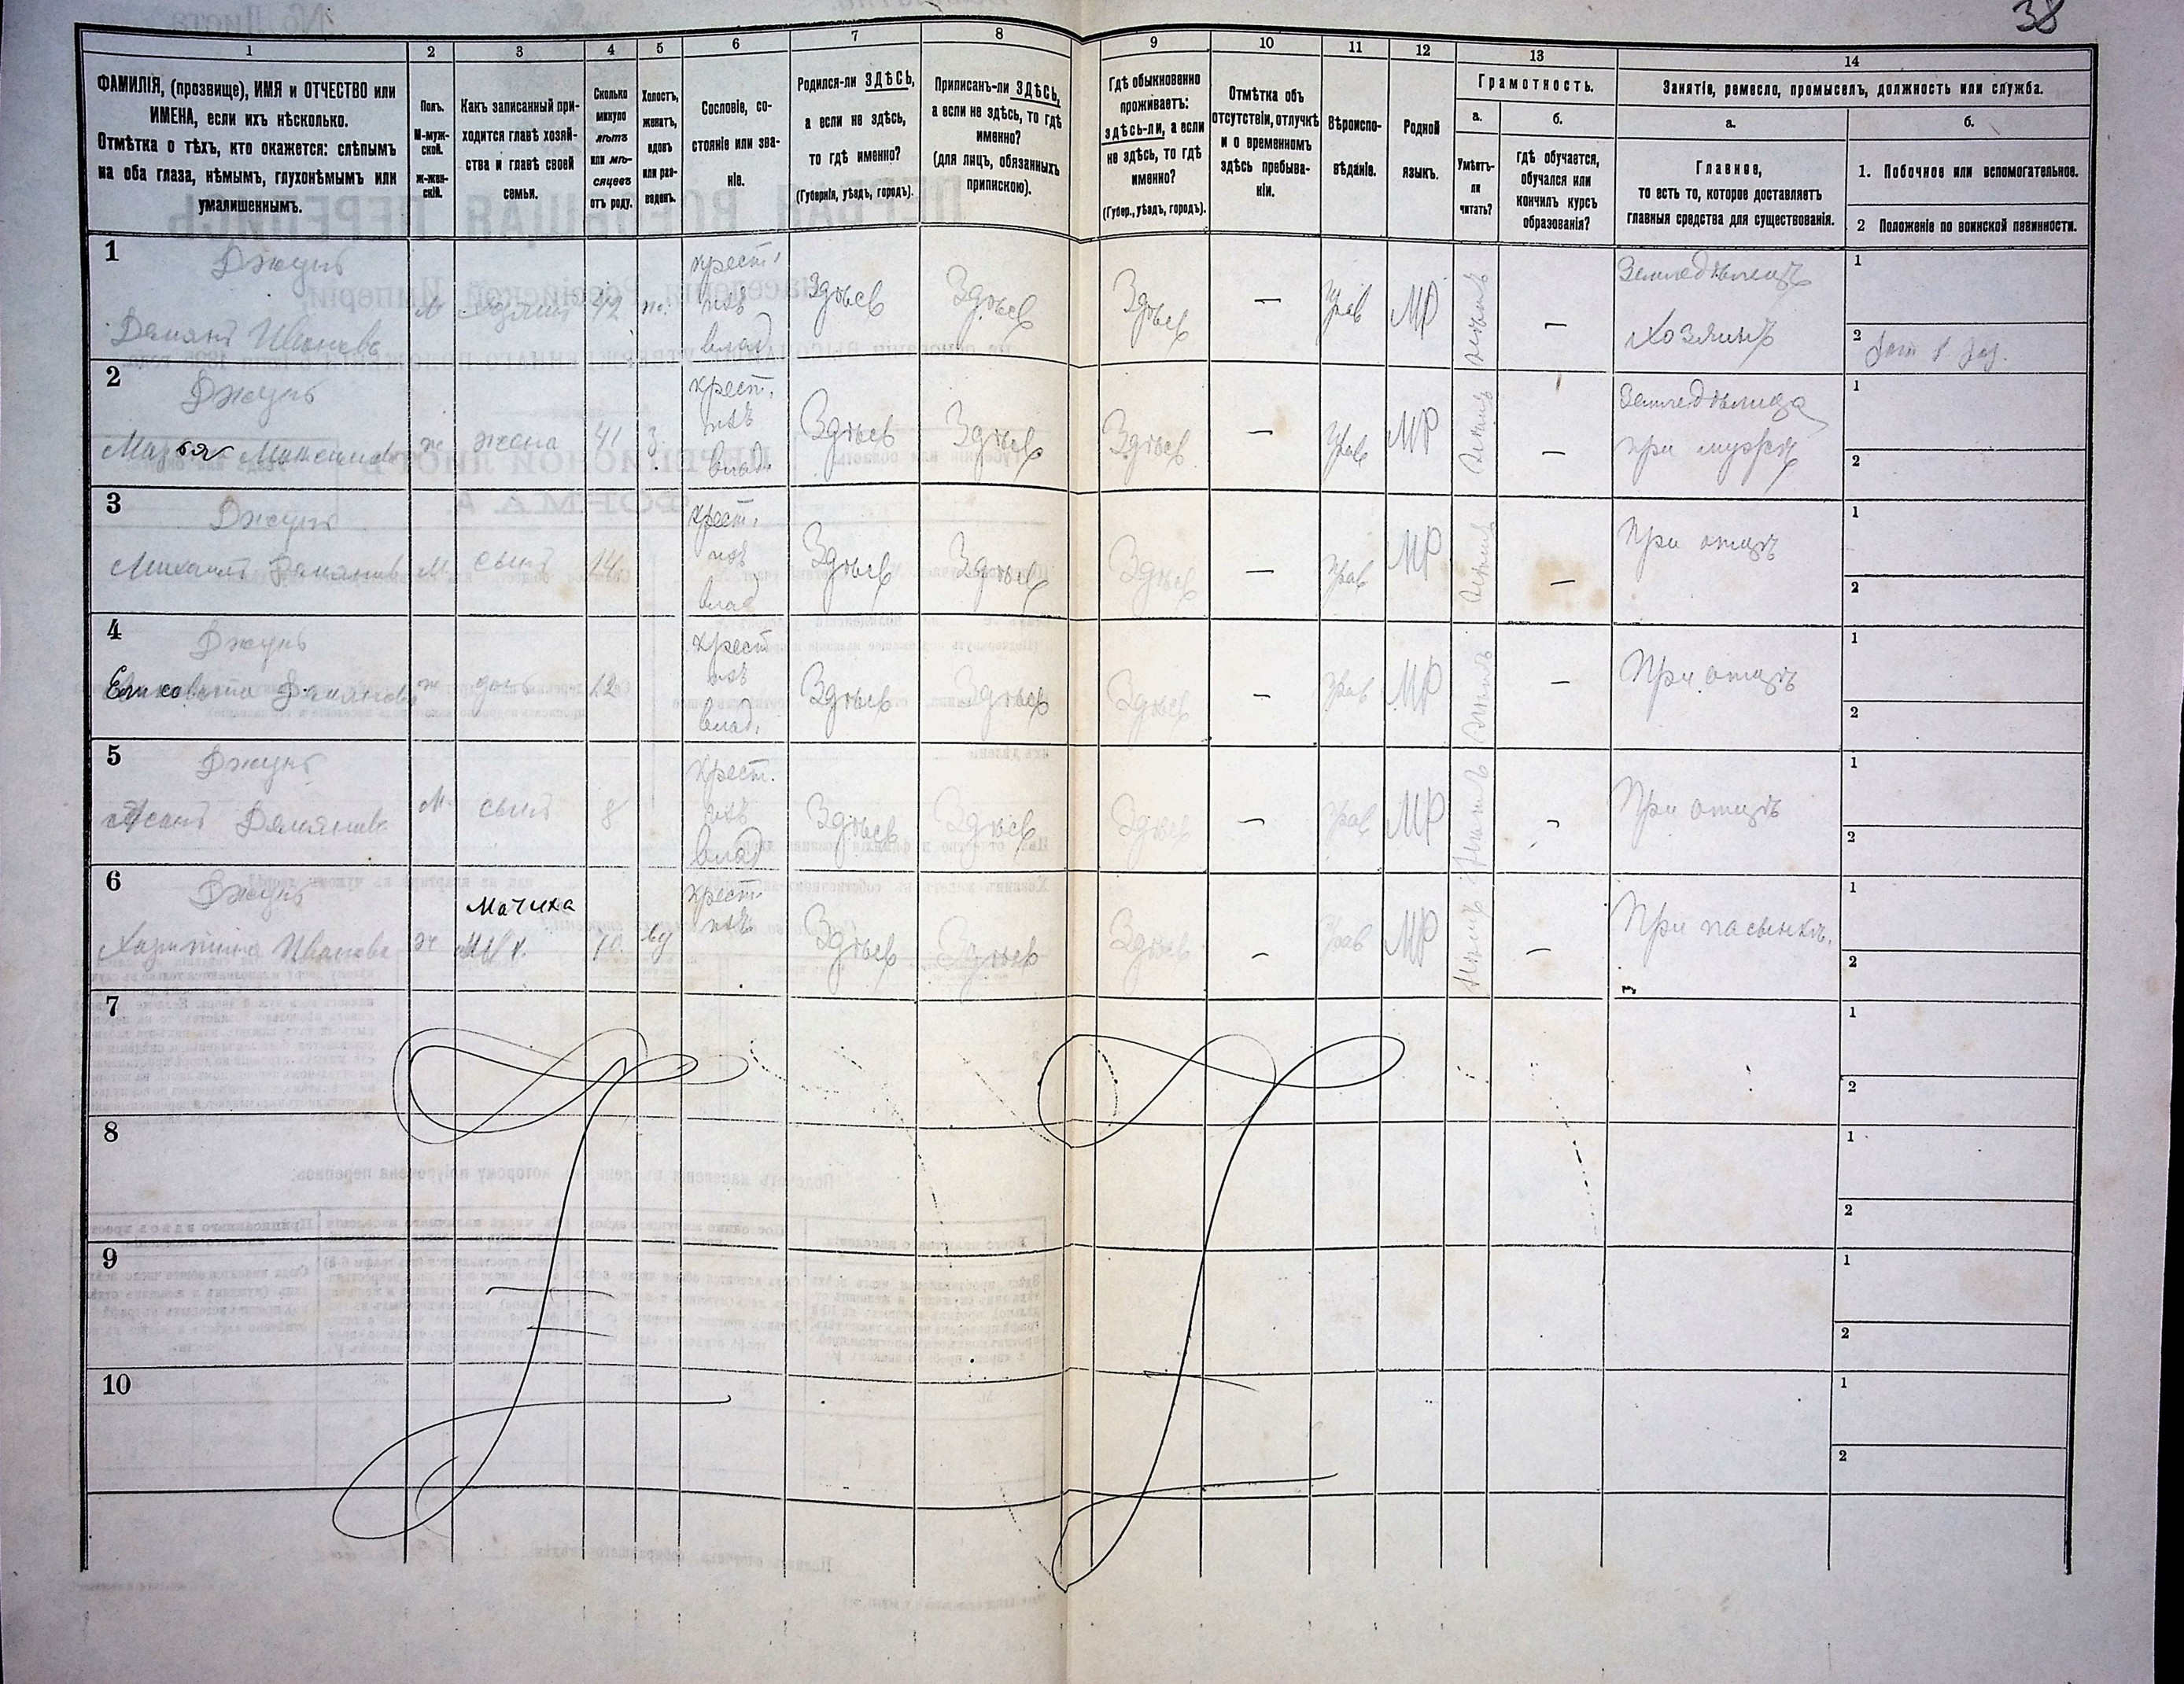 38
1
2
3
4
5
6
7
8
9
10
11
12
13
14
ФАМИЛІЯ, (прозвище), ИМЯ и ОТЧЕСТВО или
ИМЕНА, если ихъ нѣсколько.
Отмѣтка о тѣхъ, кто окажется: слѣпымъ
на оба глаза, нѣмымъ, глухонѣмымъ или
умалишеннымъ.
Полъ.
М-муж-
ской.
ж-жен-
скій.
Какъ записанный при-
ходится главѣ хозяй-
ства и главѣ своей
семьи.
Сколько
минуло
лѣтъ
или мѣ-
сяцевъ
отъ роду.
Холостъ,
женатъ,
вдовъ
или раз-
веденъ.
Сословіе, со-
стояніе или зва-
ніе.
Родился-ли ЗДѢСЬ,
а если не здѣсь,
то гдѣ именно?
(Губернія, уѣздъ, городъ).
Приписанъ-ли ЗДѢСЬ,
а если не здѣсь, то гдѣ
именно?
(для лицъ, обязанныхъ
припискою).
Гдѣ обыкновенно
проживаетъ:
здѣсь-ли, а если
не здѣсь, то гдѣ
именно?
(Губер., уѣздъ, городъ).
Отмѣтка объ
отсутствіи, отлучкѣ
и о временномъ
здѣсь пребыва-
ніи.
Вѣроиспо-
вѣданіе.
Родной
языкъ.
Грамотность.
а.
Умѣетъ-
ли
читать?
б.
гдѣ обучается,
обучался или
кончилъ курсъ
образованія?
Занятіе, ремесло, промыселъ, должность или служба.
а.
Главное,
то есть то, которое доставляетъ
главныя средства для существованія.
б.
1. Побочное или вспомогательное.
2 Положеніе по воинской повинности.
1
Джунь
Демянъ Ивановъ
м
хозяинъ
42
крест.
изъ
влад.
Здѣсь
Здѣсь
Здѣсь
—
Прав
МР
—
Земледѣлецъ
хозяинъ
1
2
2
Джунь
Марья
ж
жена
41
з.
крест.
изъ
влад.
Здѣсь
Здѣсь
Здѣсь
—
Прав
МР
—
Земледѣлица
при мужѣ
1
2
3
Джунь
Михаилъ Демяновъ
м.
сынъ
14.
крест.
изъ
влад
Здѣсь
Здѣсь
Здѣсь
—
Прав
МР
—
При отцѣ
1
2
4
Джунь
Елисовета Демянова
ж
дочь
12
крест
изъ
влад.
Здѣсь
Здѣсь
Здѣсь
—
Прав
МР
—
При отцѣ
1
2
5
Джунь
Демяновъ
м.
сынъ
8
крест.
изъ
влад
Здѣсь
Здѣсь
Здѣсь
—
Прав
МР
-
При отцѣ
1
2
6
Джунь
Харитина Иванова
ж
Мачиха
70.
вд
крест.
изъ
Здѣсь
Здѣсь
Здѣсь
—
Прав
МР
—
При пасынкѣ.
1
2
7
1
2
8
1
2
9
1
2
10
1
2